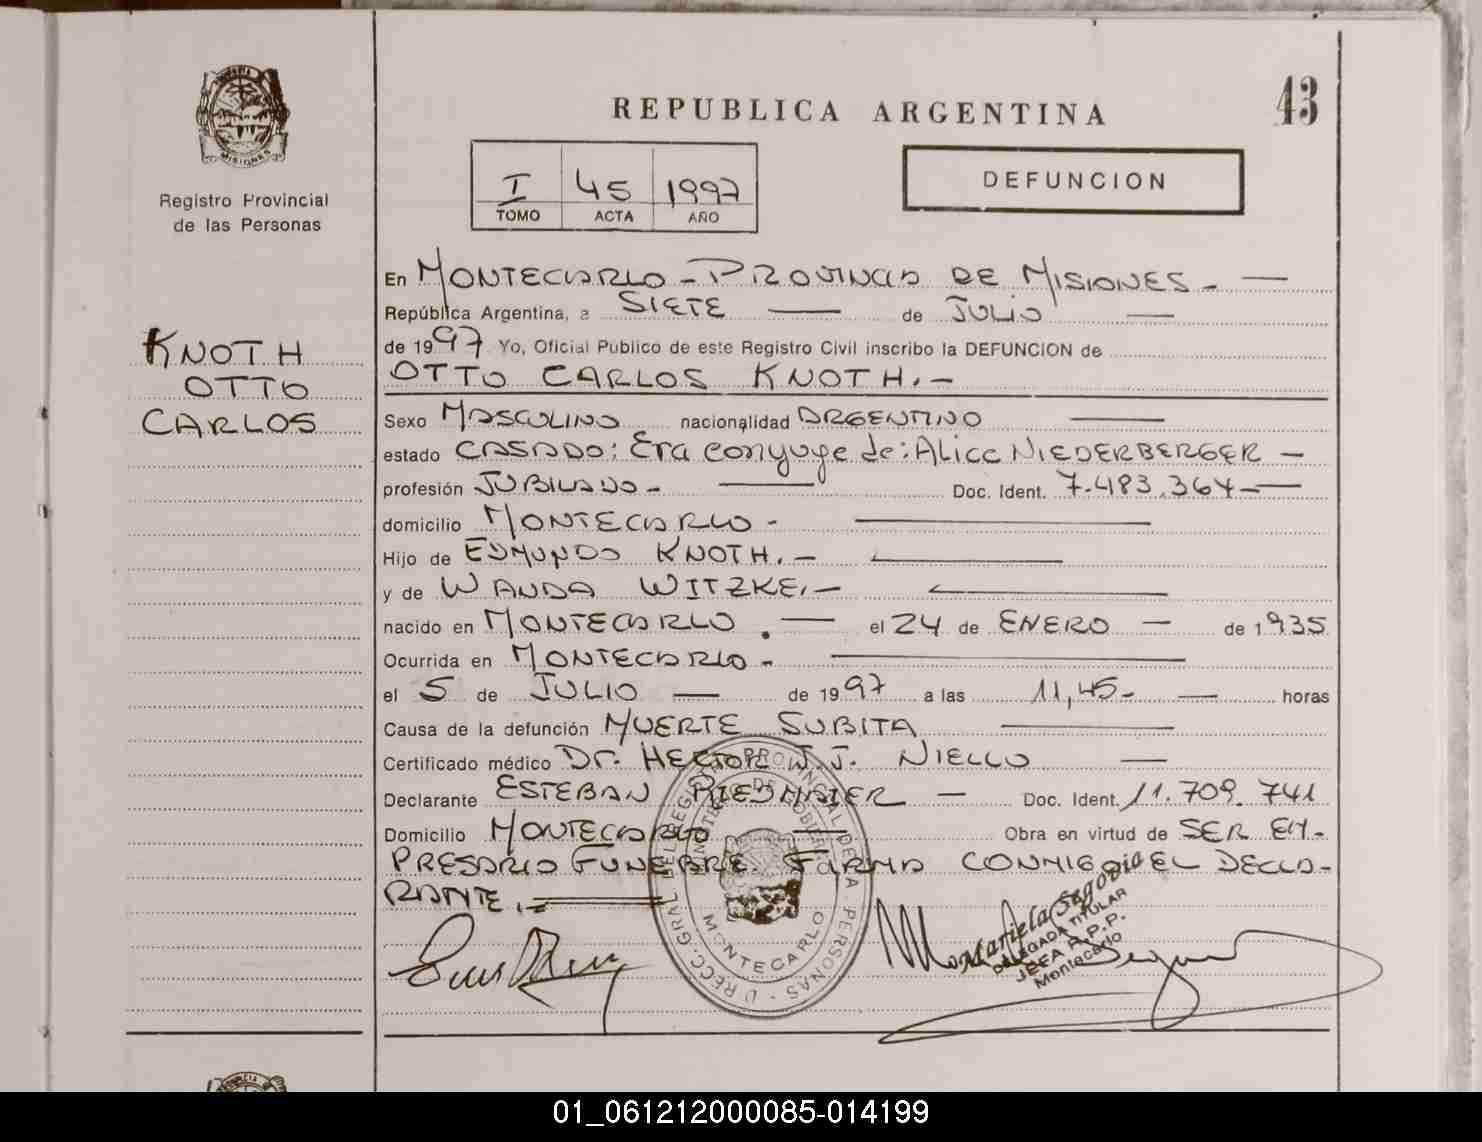 MISIONES
Registro Provincial
de las Personas
KNOTH
OTTO
CARLOS
43
REPUBLICA ARGENTINA
I 45 1997
TOMO ACTA AÑO
DEFUNCION
En MONTECARLO - PROVINCIA DE MISIONES -
República Argentina, a SIETE de JULIO
de 1997 Yo, Oficial Publico de este Registro Civil inscribo la DEFUNCION de
OTTO CARLOS KNOTH.-
Sexo MASCULINO nacionalidad ARGENTINO
estado CASADO: Era conyuge de: Alice NIEDERBERGER -
profesión JUBILADO - Doc. Ident. 7.483.364 -
domicilio MONTECARLO -
Hijo de EDMUNDO KNOTH.-
y de WANDA WITZKE.-
nacido en MONTECARLO. - el 24 de ENERO - de 1935
Ocurrida en MONTECARLO -
el 5 de JULIO - de 1997 a las 11,45 - horas
Causa de la defunción MUERTE SUBITA
Certificado médico Dr. HECTOR J.J. NIELLO
Declarante ESTEBAN RIEDMAIER - Doc. Ident. 11.709.741
Domicilio MONTECARLO Obra en virtud de SER EM-
PRESARIO FUNEBRE. FIRMA CONMIGO EL DECLA-
RANTE.
DIRECC. GRAL DEL REGISTRO PROVINCIAL DE LA PERSONAS
MINISTERIO DE GOBIERNO
MONTECARLO
Mariela Segovia
DELEGADA TITULAR
JEFA R.P.P.
Montecarlo
01_061212000085-014199